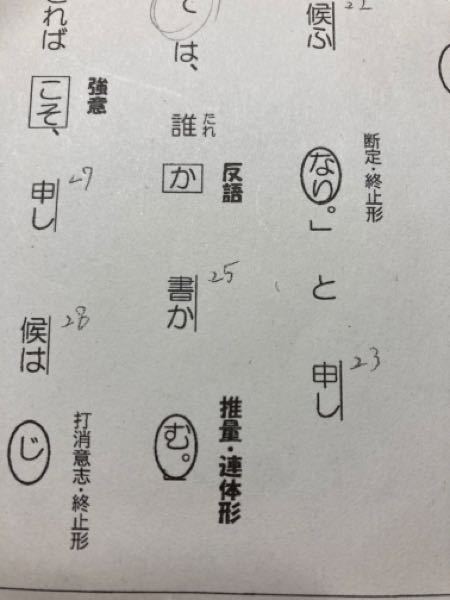 候ふ
22
断定・終止形
なり。」と申し
23
ては、誰か書かむ。
たれ
反語
25
推量・連体形
ればこそ、申し候はじ
強意
27
28
打消意志・終止形